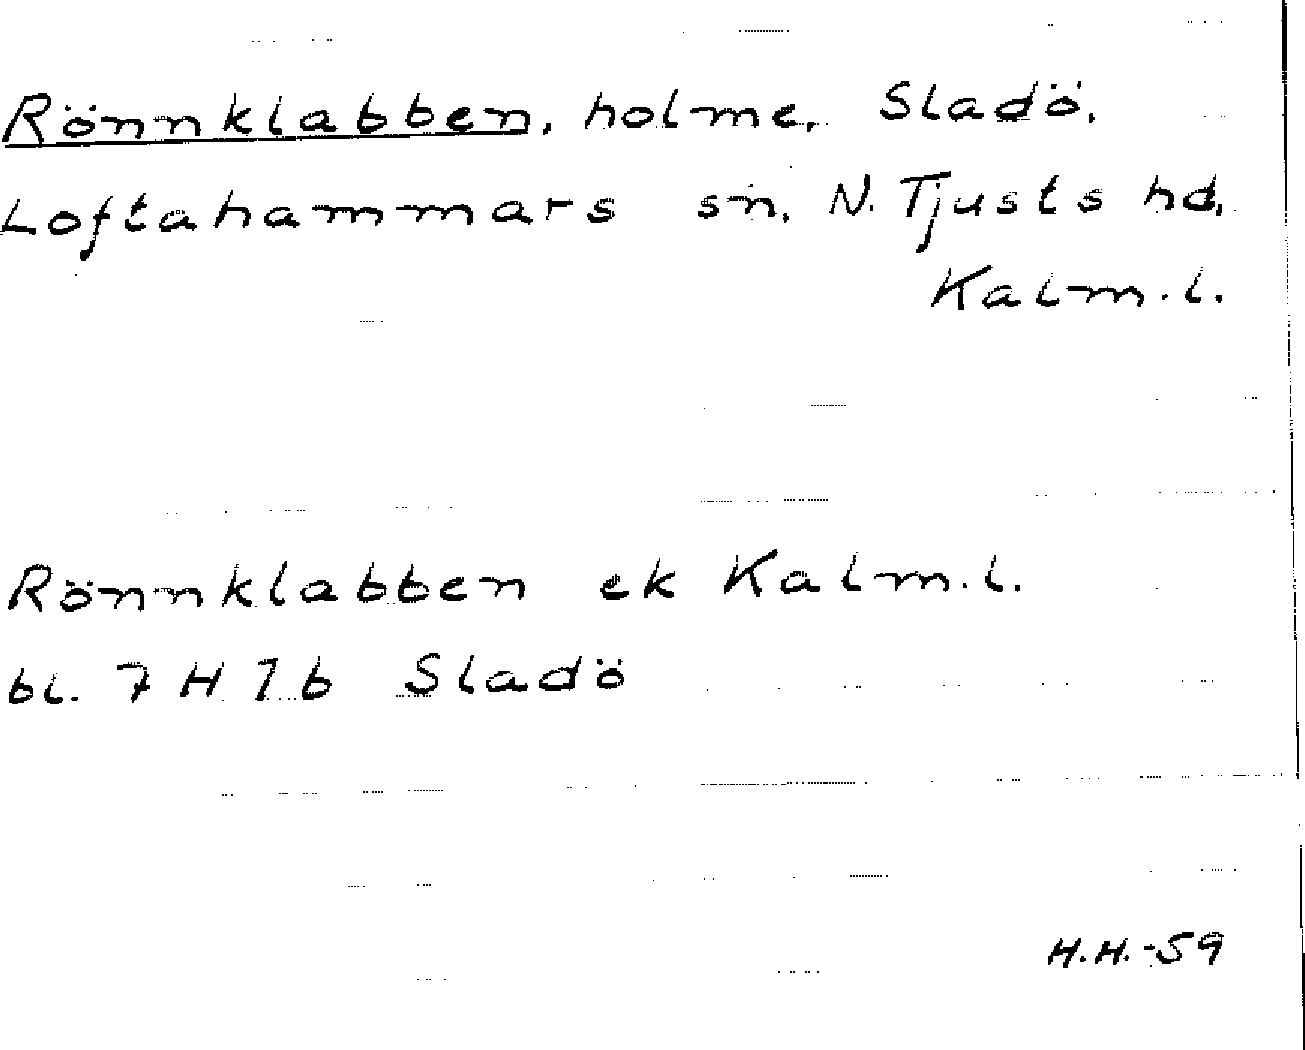 Rönnklabben, holme, Sladö,
Loftahammars sn, N. Tjusts hd,
Kalm. l.
Rönnklabben ek Kalm. l.
bl. 7 H 7 b Sladö
H.H. -59